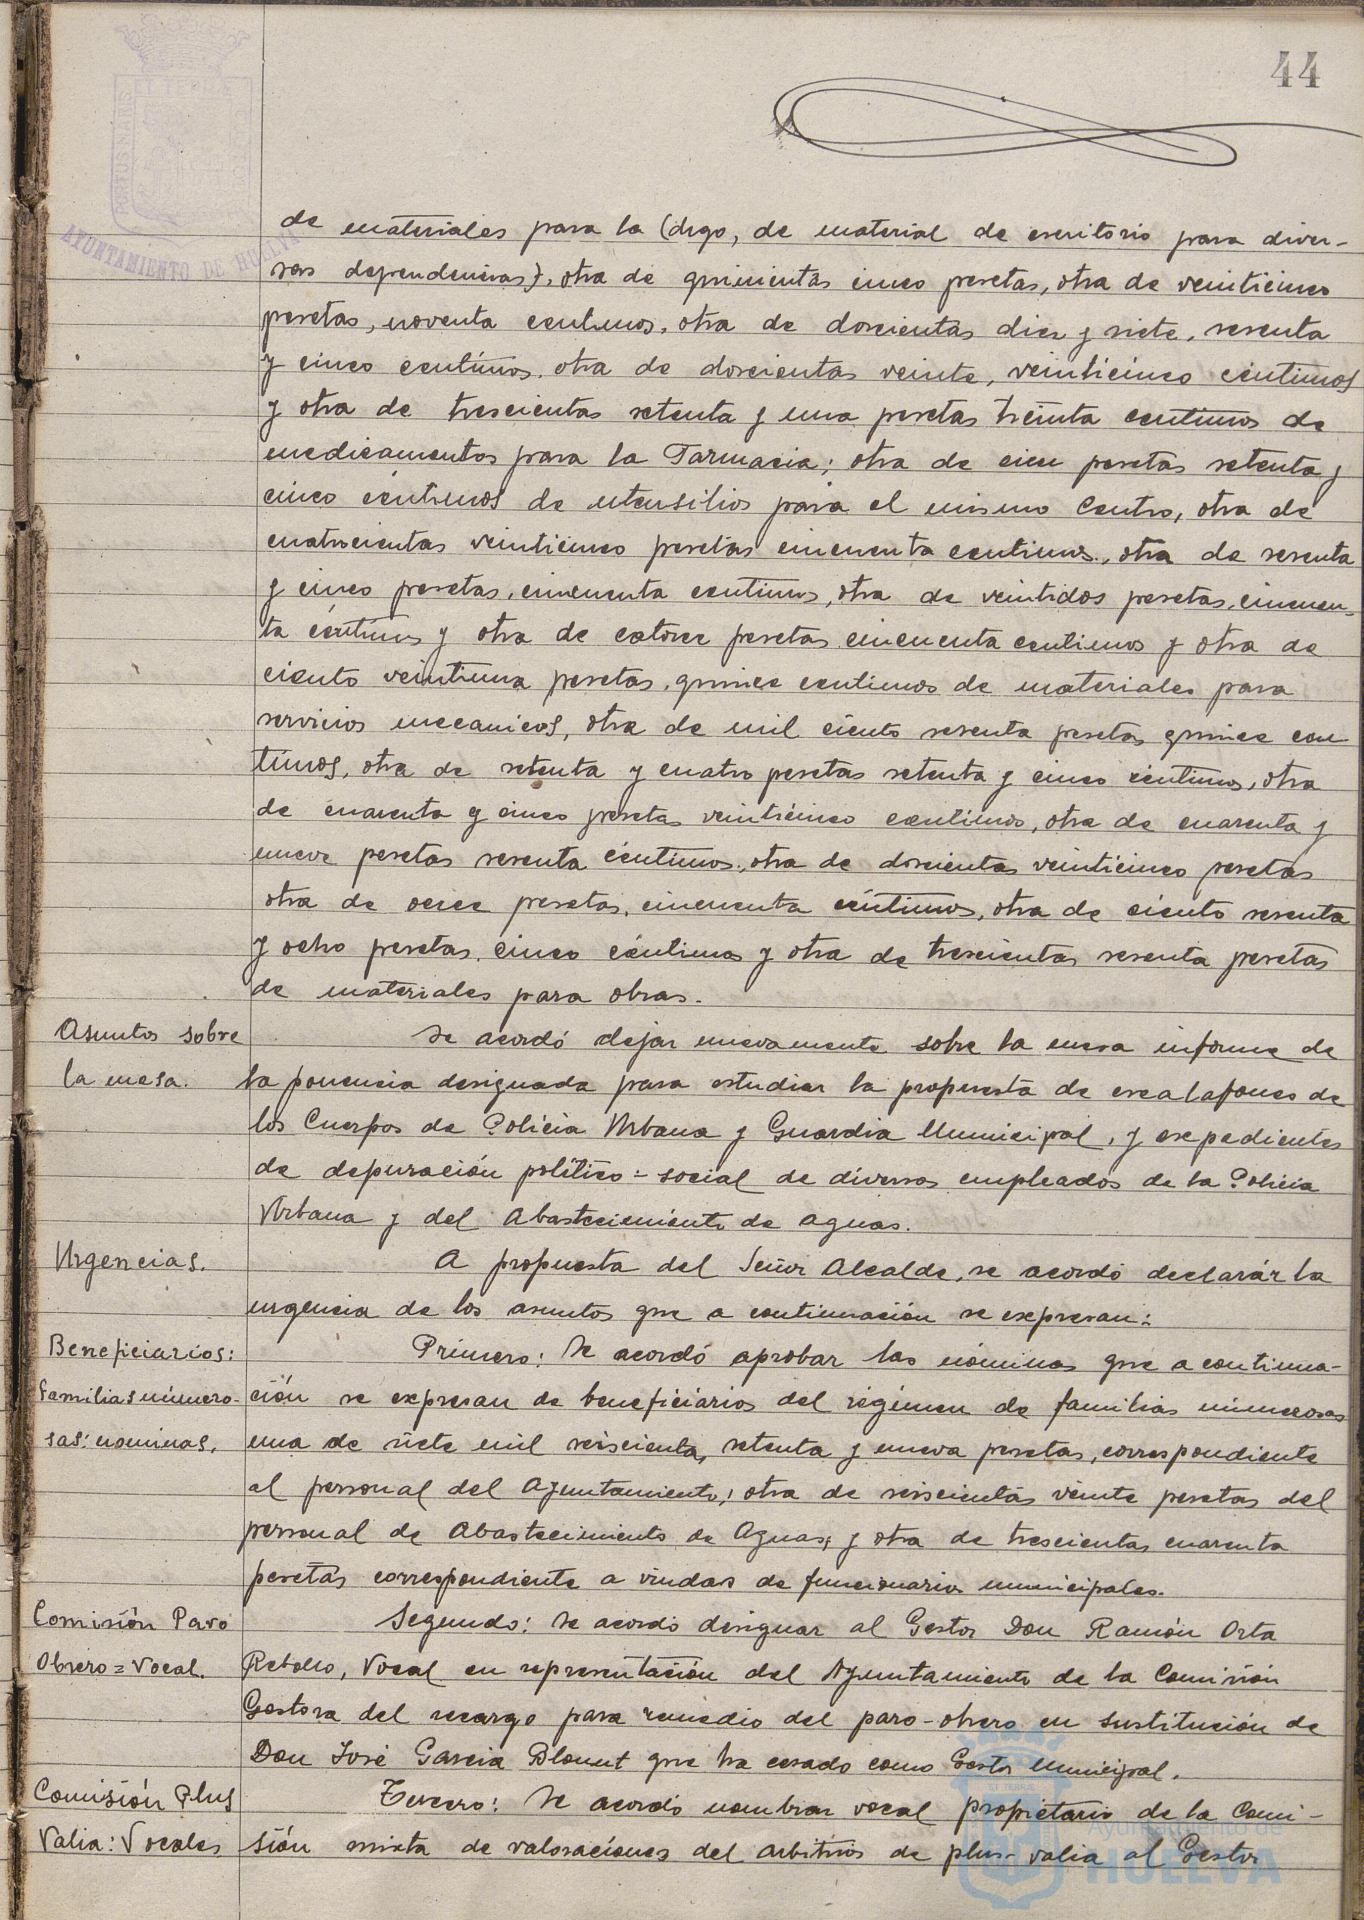 44
ET TERRÆ
PORTUS MARIS
CUSTODI
AYUNTAMIENTO DE HUELVA
de materiales para la (drgo, de material de escritorio para diver-
sas dependencias), otra de quinientas cinco pesetas, otra de veinticinco
pesetas, noventa centimos, otra de doscientas diez y siete, sesenta
y cinco centimos, otra de doscientas veinte, veinticinco centimos
y otra de trescientas setenta y una pesetas treinta centimos de
medicamentos para la Farmacia; otra de cien pesetas setenta y
cinco centimos de utensilios para el mismo Centro, otra de
cuatrocientas veinticinco pesetas cincuenta centimos, otra de sesenta
y cinco pesetas, cincuenta centimos, otra de veintidos pesetas, cincuen-
ta centimos y otra de catorce pesetas cincuenta centimos y otra de
ciento veintiuna pesetas, quince centimos de materiales para
servicios mecanicos, otra de mil ciento sesenta pesetas quince cen-
timos, otra de setenta y cuatro pesetas setenta y cinco centimos, otra
de cuarenta y cinco pesetas veinticinco centimos, otra de cuarenta y
nueve pesetas sesenta centimos, otra de doscientas veinticinco pesetas
otra de once pesetas, cincuenta centimos, otra de ciento sesenta
y ocho pesetas, cinco centimos y otra de trescientas sesenta pesetas
de materiales para obras.
Asuntos sobre
la mesa.
Se acordó dejar nuevamente sobre la mesa informe de
la ponencia designada para estudiar la propuesta de escalafones de
los Cuerpos de Policia Urbana y Guardia Municipal, y expedientes
de depuración político=social de diversos empleados de la Policia
Urbana y del Abastecimiento de Aguas.
Urgencias.
A propuesta del Señor Alcalde, se acordó declarar la
urgencia de los asuntos que a continuación se expresan:
Beneficiarios:
familias numero-
sas: nominas.
Primero: Se acordó aprobar las nóminas que a continua-
ción se expresan de beneficiarios del régimen de familias numerosas
una de siete mil seiscientas setenta y nueva pesetas, correspondiente
al personal del Ayuntamiento; otra de seiscientas veinte pesetas del
personal de Abastecimiento de Aguas; y otra de trescientas cuarenta
pesetas correspondiente a viudas de funcionarios municipales.
Comisión Paro
Obrero=Vocal.
Segundo: Se acordó designar al Gestor Don Ramón Orta
Rebollo, Vocal en representación del Ayuntamiento de la Comisión
Gestora del recargo para remedio del paro-obrero en sustitución de
Don José Garcia Blount que ha cesado como Gestor Municipal.
Comisión Plus
Valia: Vocales
Tercero: Se acordó nombrar vocal propietario de la Comi-
sión mixta de valoraciones del arbitrios de plus-valia al Gestor
Ayuntamiento de
HUELVA